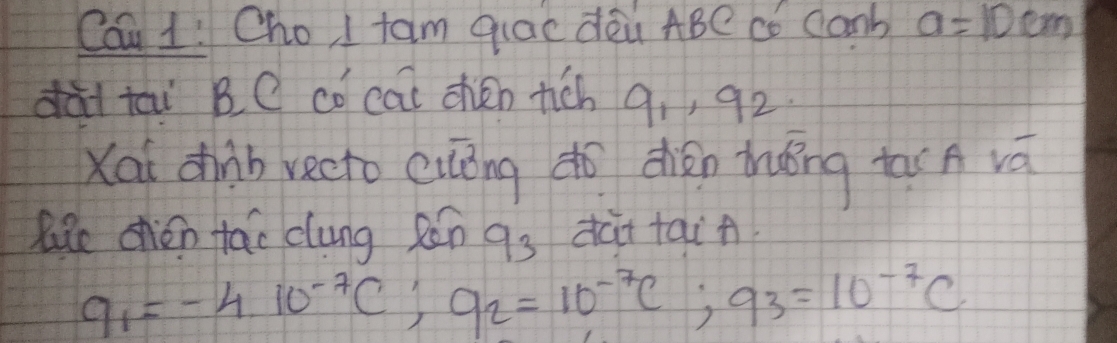 Câu 1: Cho 1 tam giác đều ABC có cạnh a=10cm
đặt tại B, C có các điện tích q₁, q₂.
Xác định vecto cường độ điện trường tại A và
lực điện tác dụng lên q₃ đặt tại A.
q₁ = -4 10⁻⁷C; q₂ = 10⁻⁷C; q₃ = 10⁻⁷C